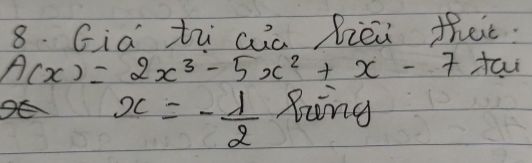 8. Giá trị của biểu thức:
A(x) = 2x³ - 5x² + x - 7 tại
x = -1/2 bằng